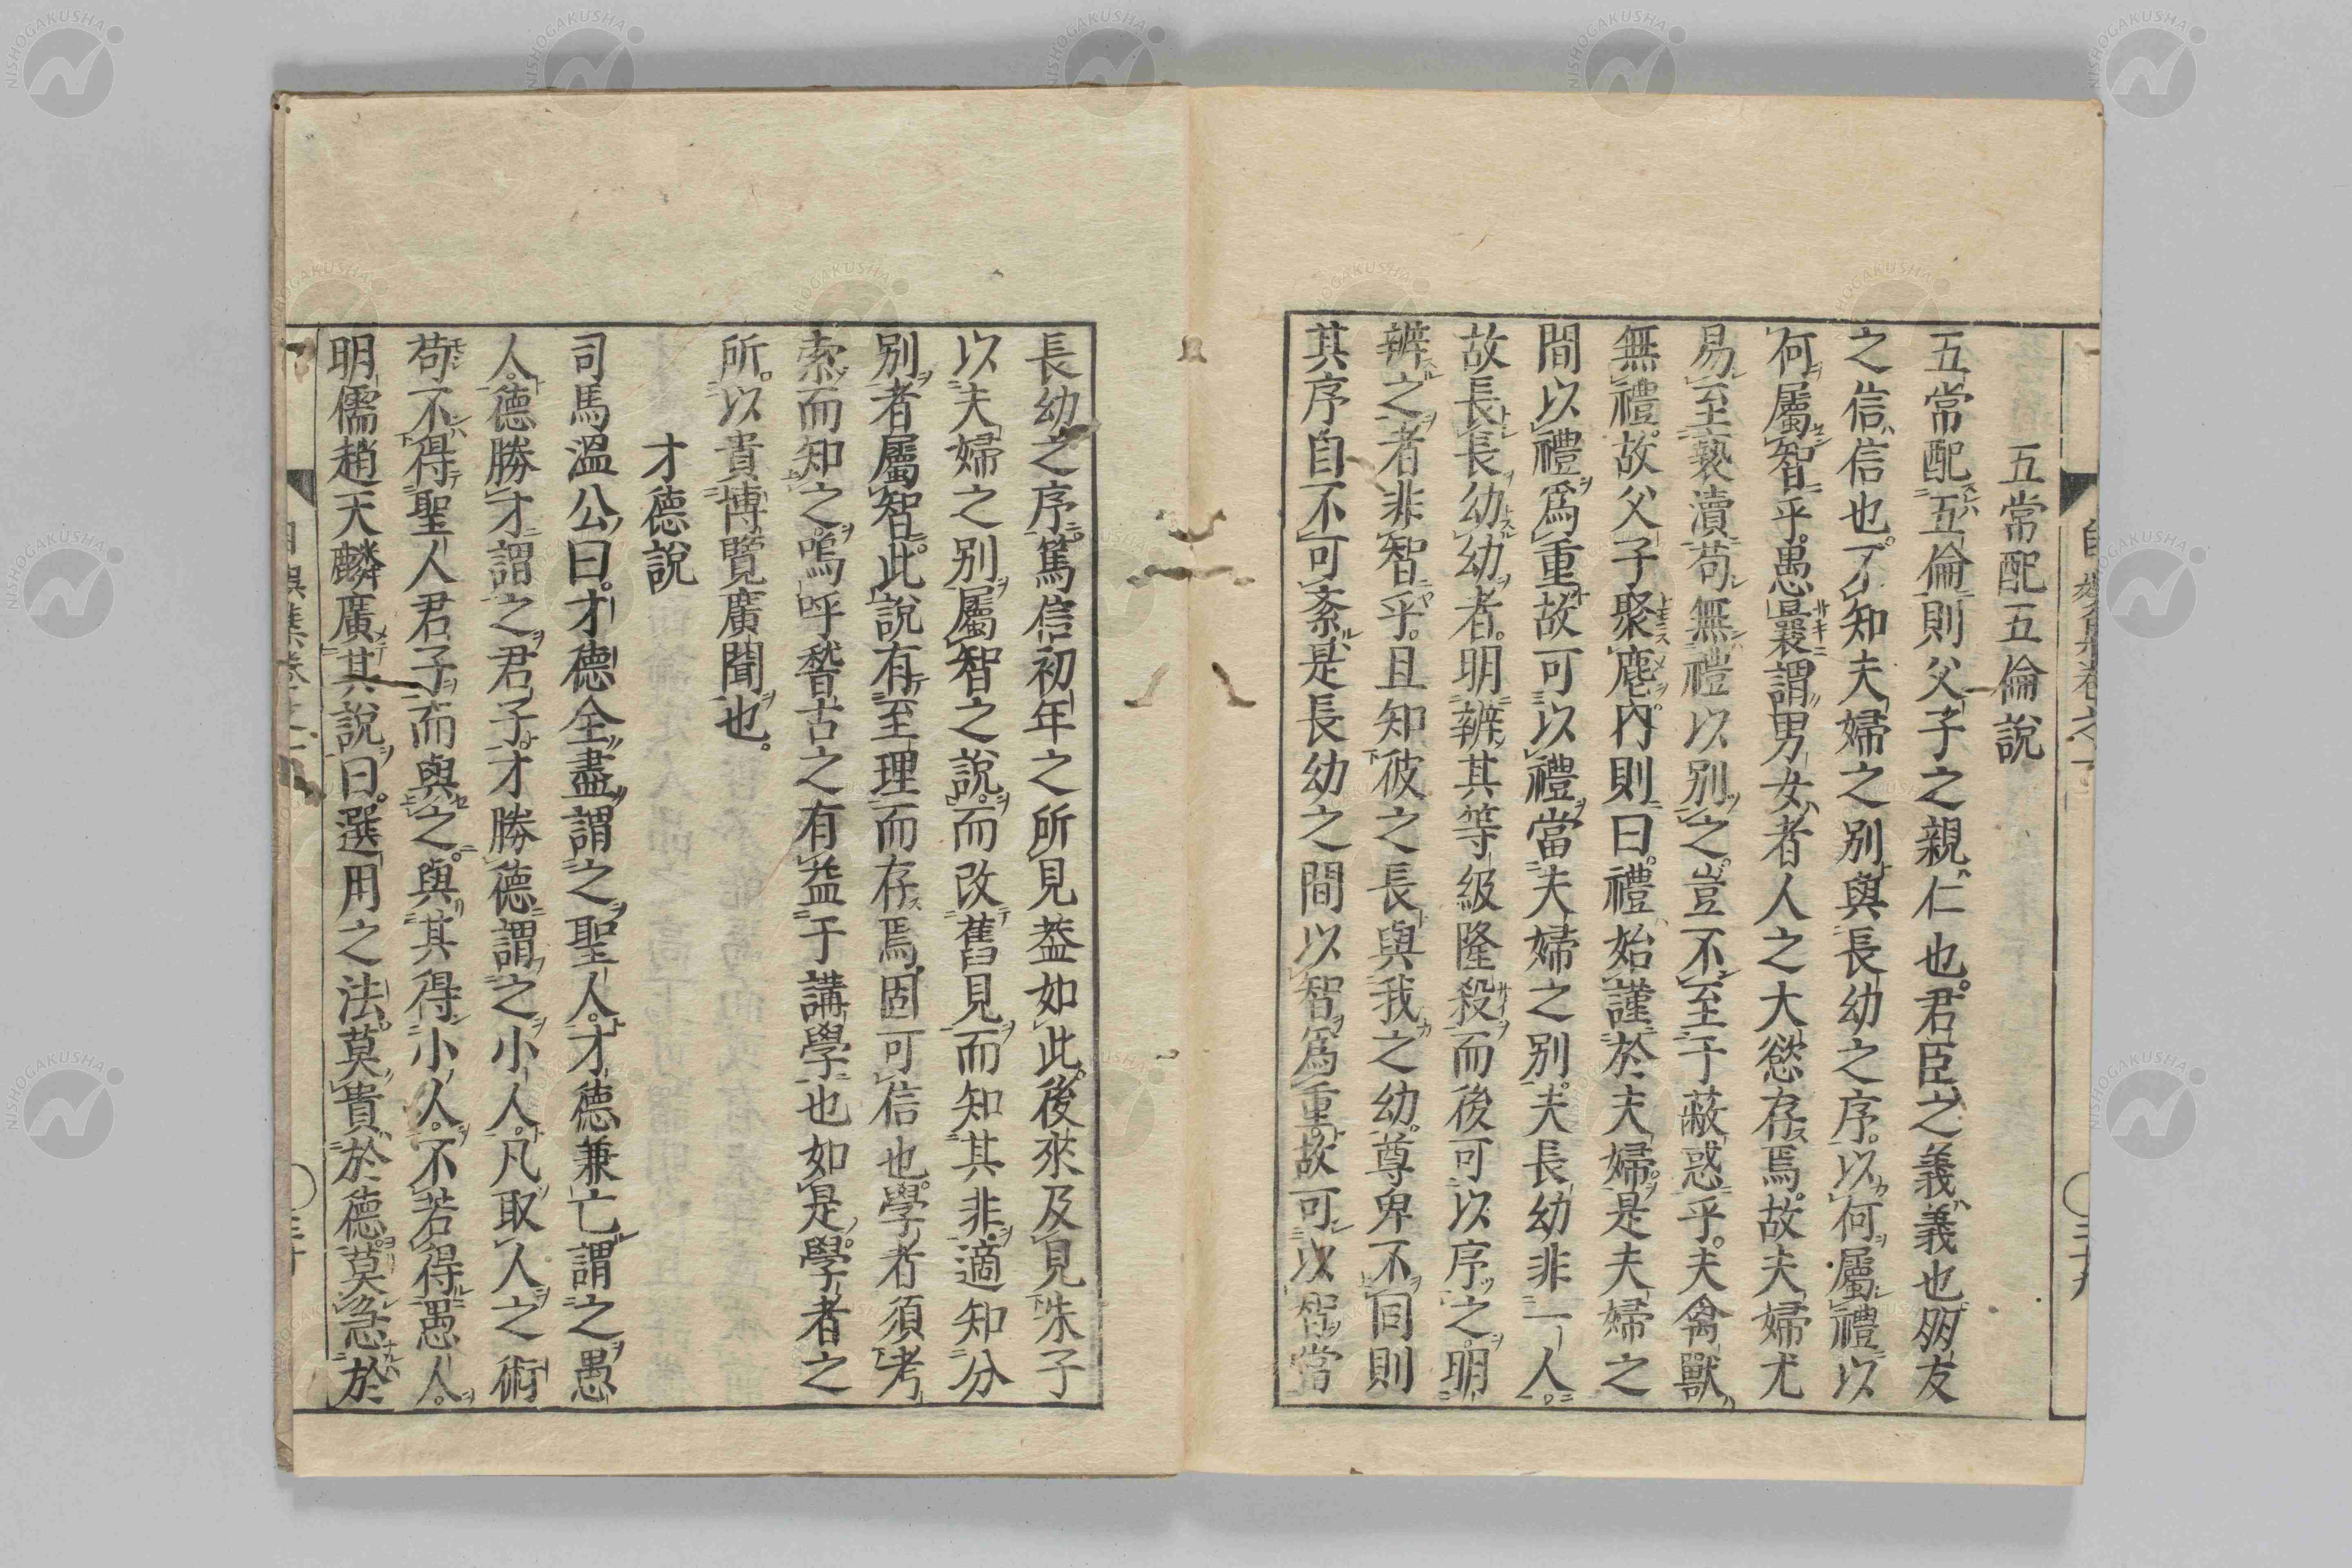 五常配五倫說
五常配五倫則父子之親仁也君臣之義義也朋友
之信信也不知夫婦之別與長幼之序以何屬禮以
何屬智乎愚曩謂男女者人之大慾存焉故夫婦尤
易至褻瀆苟無禮以別之豈不至于蔽惑乎夫禽獸
無禮故父子聚麀內則曰禮始謹於夫婦是夫婦之
間以禮爲重故可以禮當夫婦之別夫長幼非一人
故長長幼幼者明辨其等級隆殺而後可以序之明
辨之者非智乎且知彼之長與我之幼尊卑不同則
其序自不可紊是長幼之間以智爲重故可以智當
長幼之序篤信初年之所見蓋如此後來及見朱子
以夫婦之別屬智之說而改舊見而知其非適知分
別者屬智此說有至理而存焉固可信也學者須考
索而知之嗚呼稽古之有益于講學也如是學者之
所以貴博覽廣聞也
才德說
司馬溫公曰才德全盡謂之聖人才德兼亡謂之愚
人德勝才謂之君子才勝德謂之小人凡取人之術
苟不得聖人君子而與之與其得小人不若得愚人
明儒趙天麟廣其說曰選用之法莫貴於德莫急於